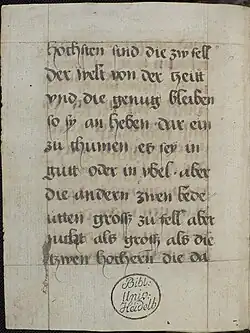 hochsten sind die zw fell
der welt von der heitt
vnd die genug bleiben
so sy an heben dar ein
zu thumen es sey in
gutt oder in vbel · aber
die andern zwen bede
utten groſſ zu fell aber
nicht als groſſ als die
tzwen hochern die da
Bibl.
Univ.
Heidelb